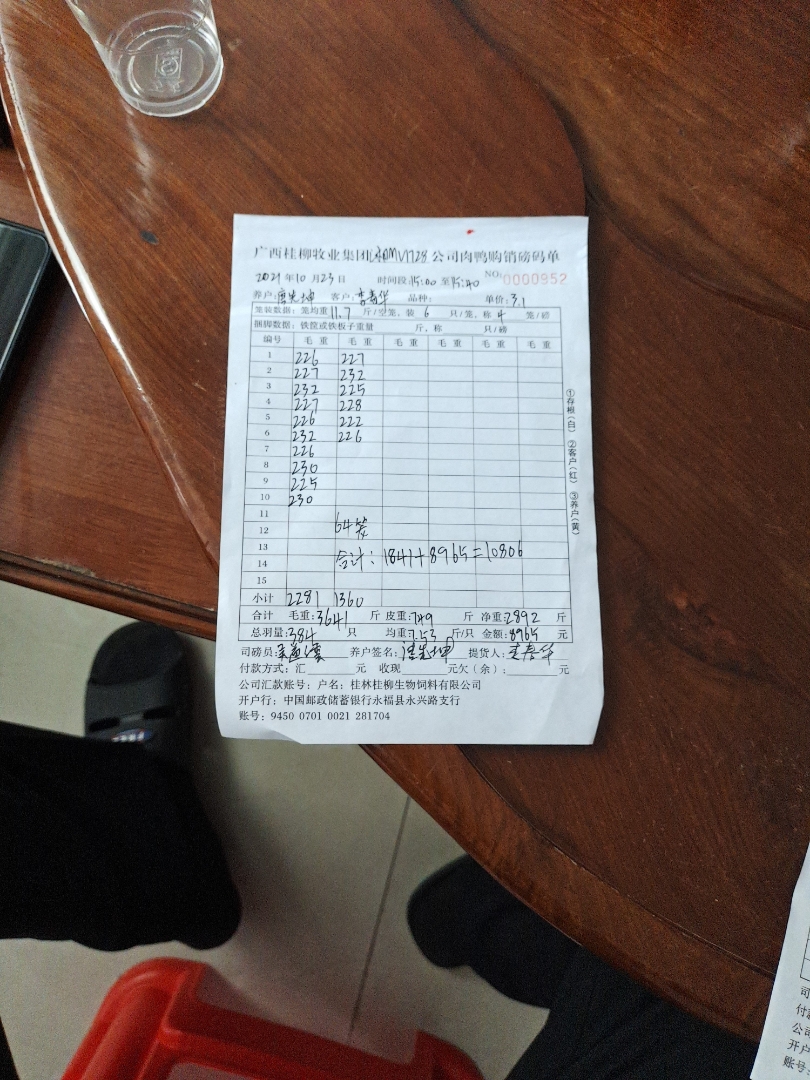 广西桂柳牧业集团 公司肉鸭购销磅码单
2021年10月23日 时间段:15:00至15:40 NO:0000952
养户: 客户:李春华 品种: 单价:3.1
笼装数据: 笼均重11.7斤/空笼, 装6只/笼, 称4笼/磅
捆脚数据: 铁筐或铁板子重量 斤, 称 只/磅
编号 毛重 毛重 毛重 毛重 毛重 毛重
1 226 227
2 227 232
3 232 225
4 227 228
5 226 222
6 232 226
7 226
8 230
9 225
10 230
11
12 64笼
13
合计: 1841+8965=10806
14
15
小计 2281 1360
合计 毛重:3641斤 皮重:749斤 净重:2892斤
总羽量:384只 均重:7.53斤/只 金额:8965元
司磅员: 养户签名: 提货人:李春华
付款方式: 汇 元 收现 元欠(余): 元
公司汇款账号: 户名: 桂林桂柳生物饲料有限公司
开户行: 中国邮政储蓄银行永福县永兴路支行
账号: 9450 0701 0021 281704
①存根(白) ②客户(红) ③养户(黄)
司
付款
公司
开户
账号